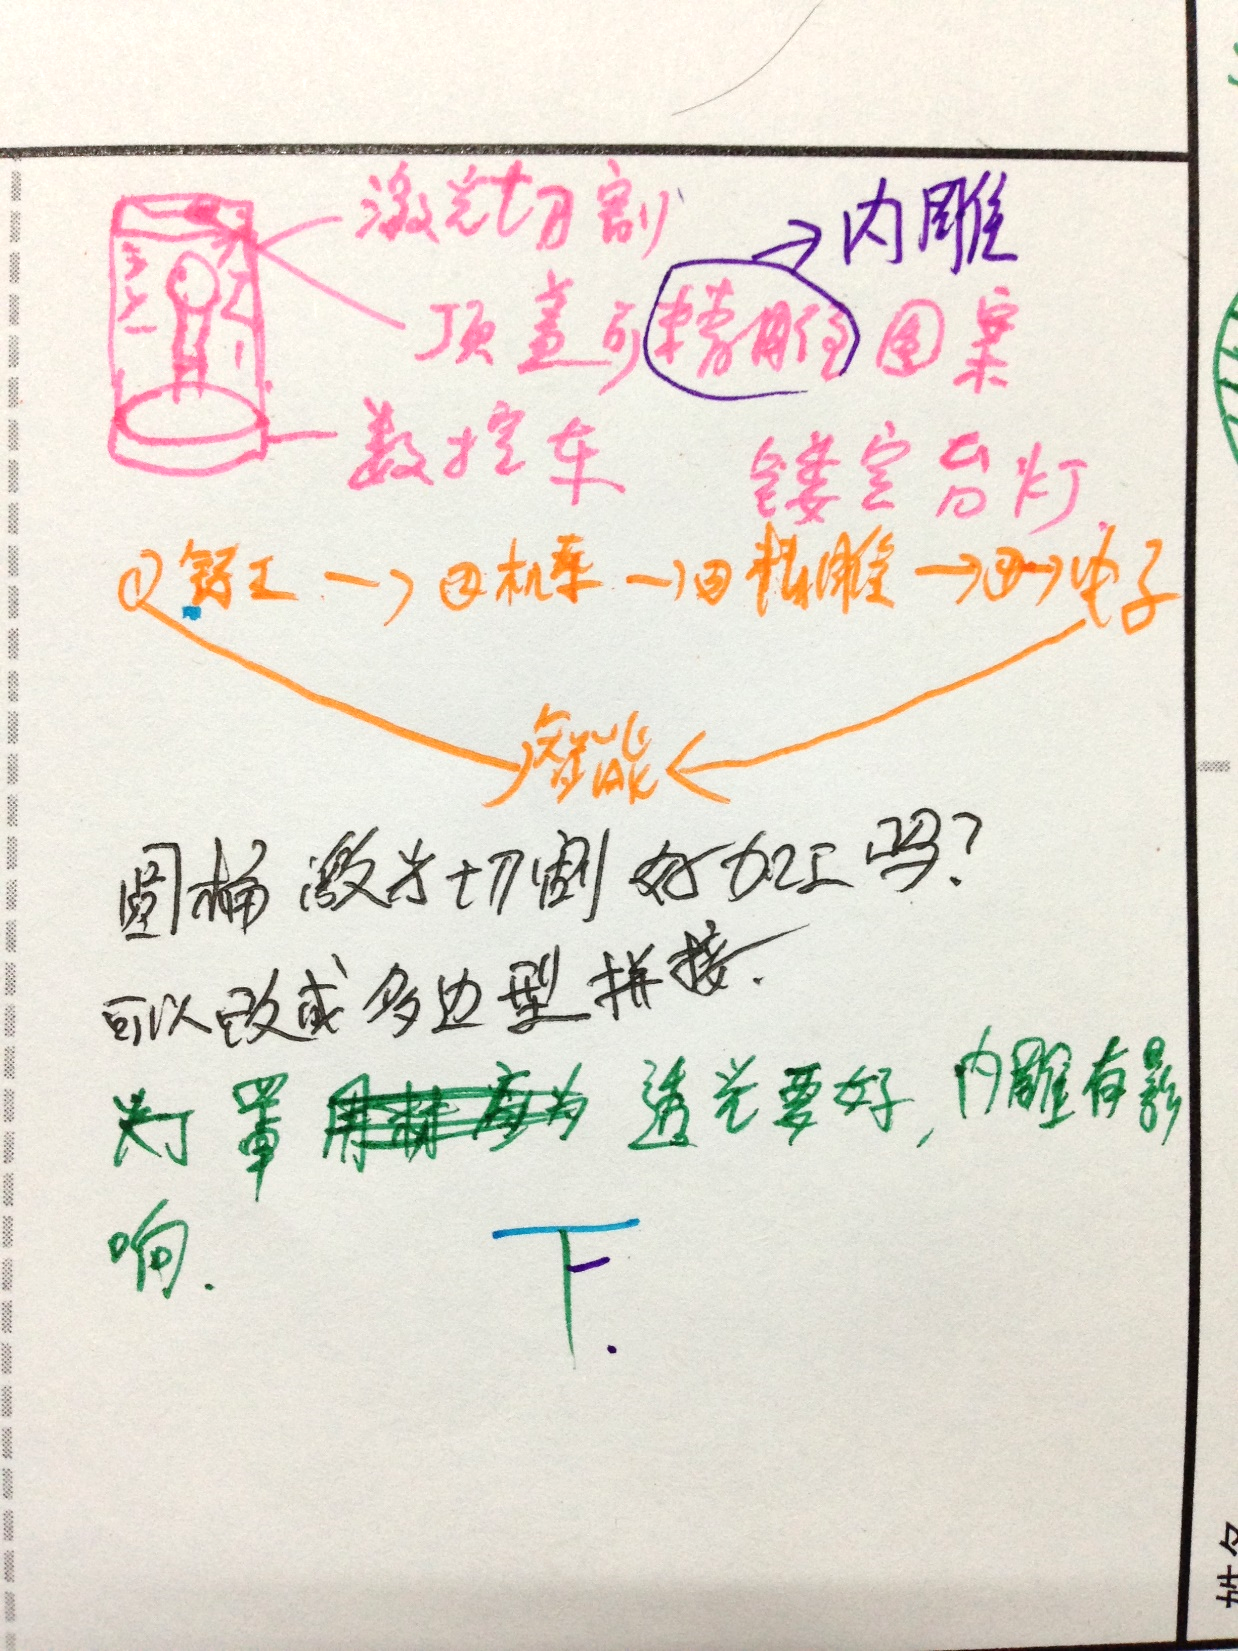 激光切割
内雕
顶盖可精雕图案
数控车
镂空台灯
① 钳工 → 机车 → 精雕 → → 电子
智能
圆桶激光切割好加工吗?
可以改成多边型拼接.
灯罩 透光要好,内雕有影
响.
下
姓名